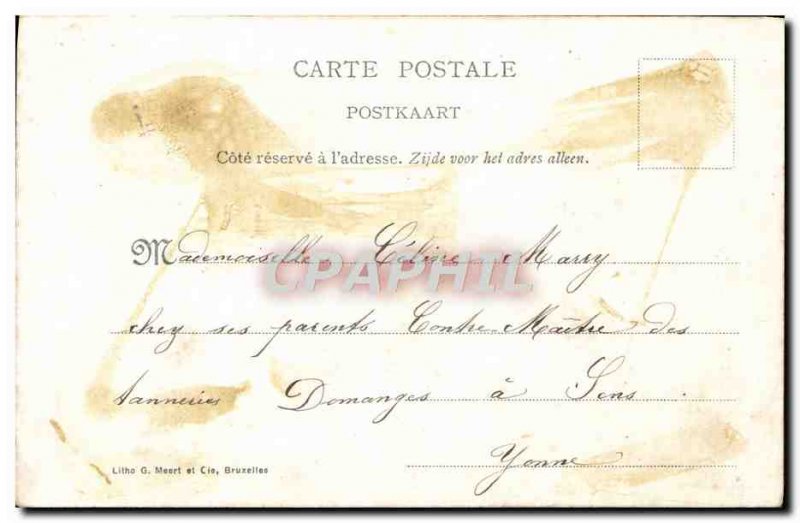 CARTE POSTALE
POSTKAART
Côté réservé à l'adresse. Zijde voor het adres alleen.
Mademoiselle Céline Marry
CPAPHIL
chez ses parents Contre-Maître des
tanneries Domanges à Sens
Yonne
Litho G. Meert et Cie, Bruxelles